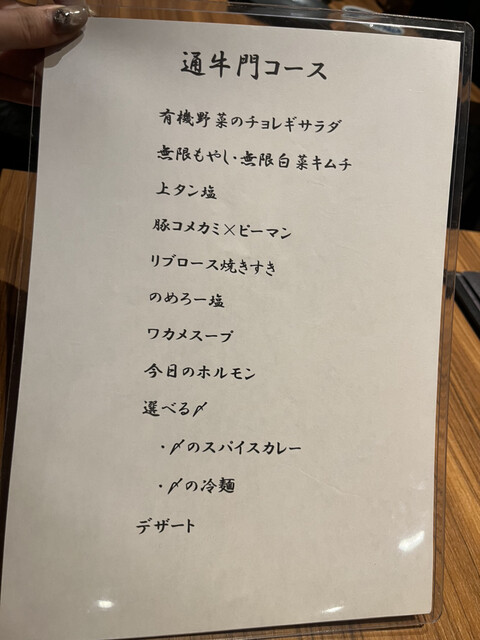 通牛門コース
有機野菜のチョレギサラダ
無限もやし・無限白菜キムチ
上タン塩
豚コメカミ×ピーマン
リブロース焼きすき
のめろー塩
ワカメスープ
今日のホルモン
選べる〆
・〆のスパイスカレー
・〆の冷麺
デザート